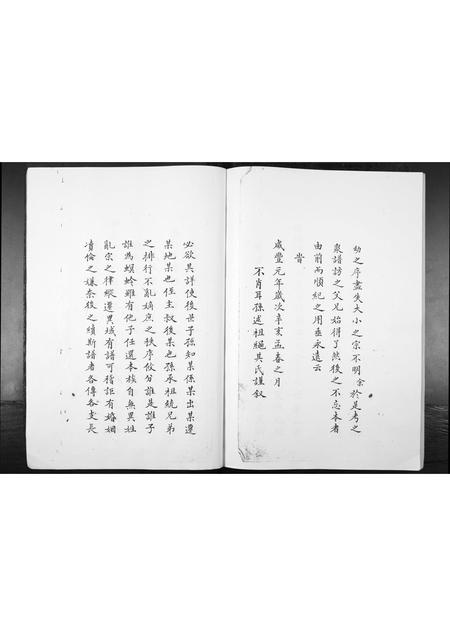 幼之序盡失大小之宗不明余於是考之
衆譜訪之父兄始得了然後之不忘本者
由前而順紀之用垂永遠云
旹
咸豐元年歲次辛亥孟春之月
不肖耳孫述祖繩其氏謹叙
必欲其詳使後世子孫知某係某出某遷
某地某也侄主叔後某也孫承祖統兄弟
之排行不亂嫡庶之秩序攸分誰是誰子
誰為螟蛉雖有他子任選本族自無異姓
亂宗之律縱遷異域有譜可稽詎有婚姻
凟倫之嫌奈後之續斯譜者各傳各支長